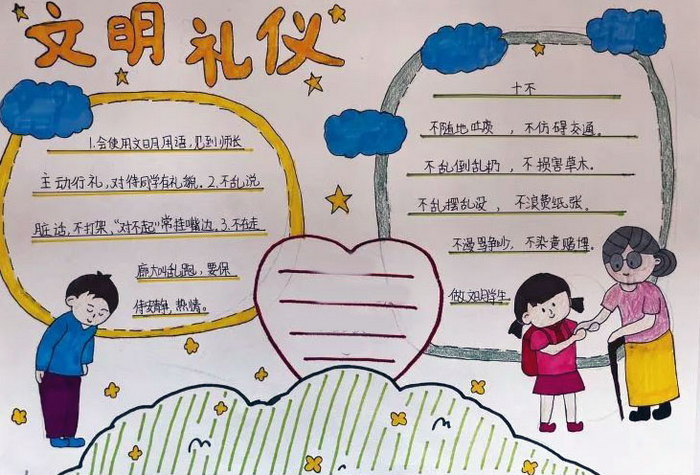 文明礼仪
1.会使用文明用语,见到师长
主动行礼,对待同学有礼貌。2.不乱说
脏话,不打架,"对不起"常挂嘴边.3.不在走
廊大叫乱跑,要保
持安静,热情。
十不
不随地吐痰,不仿碍交通。
不乱倒乱扔,不损害草木。
不乱摆乱设,不浪费纸张。
不漫骂争吵,不染黄赌博。
做文明学生